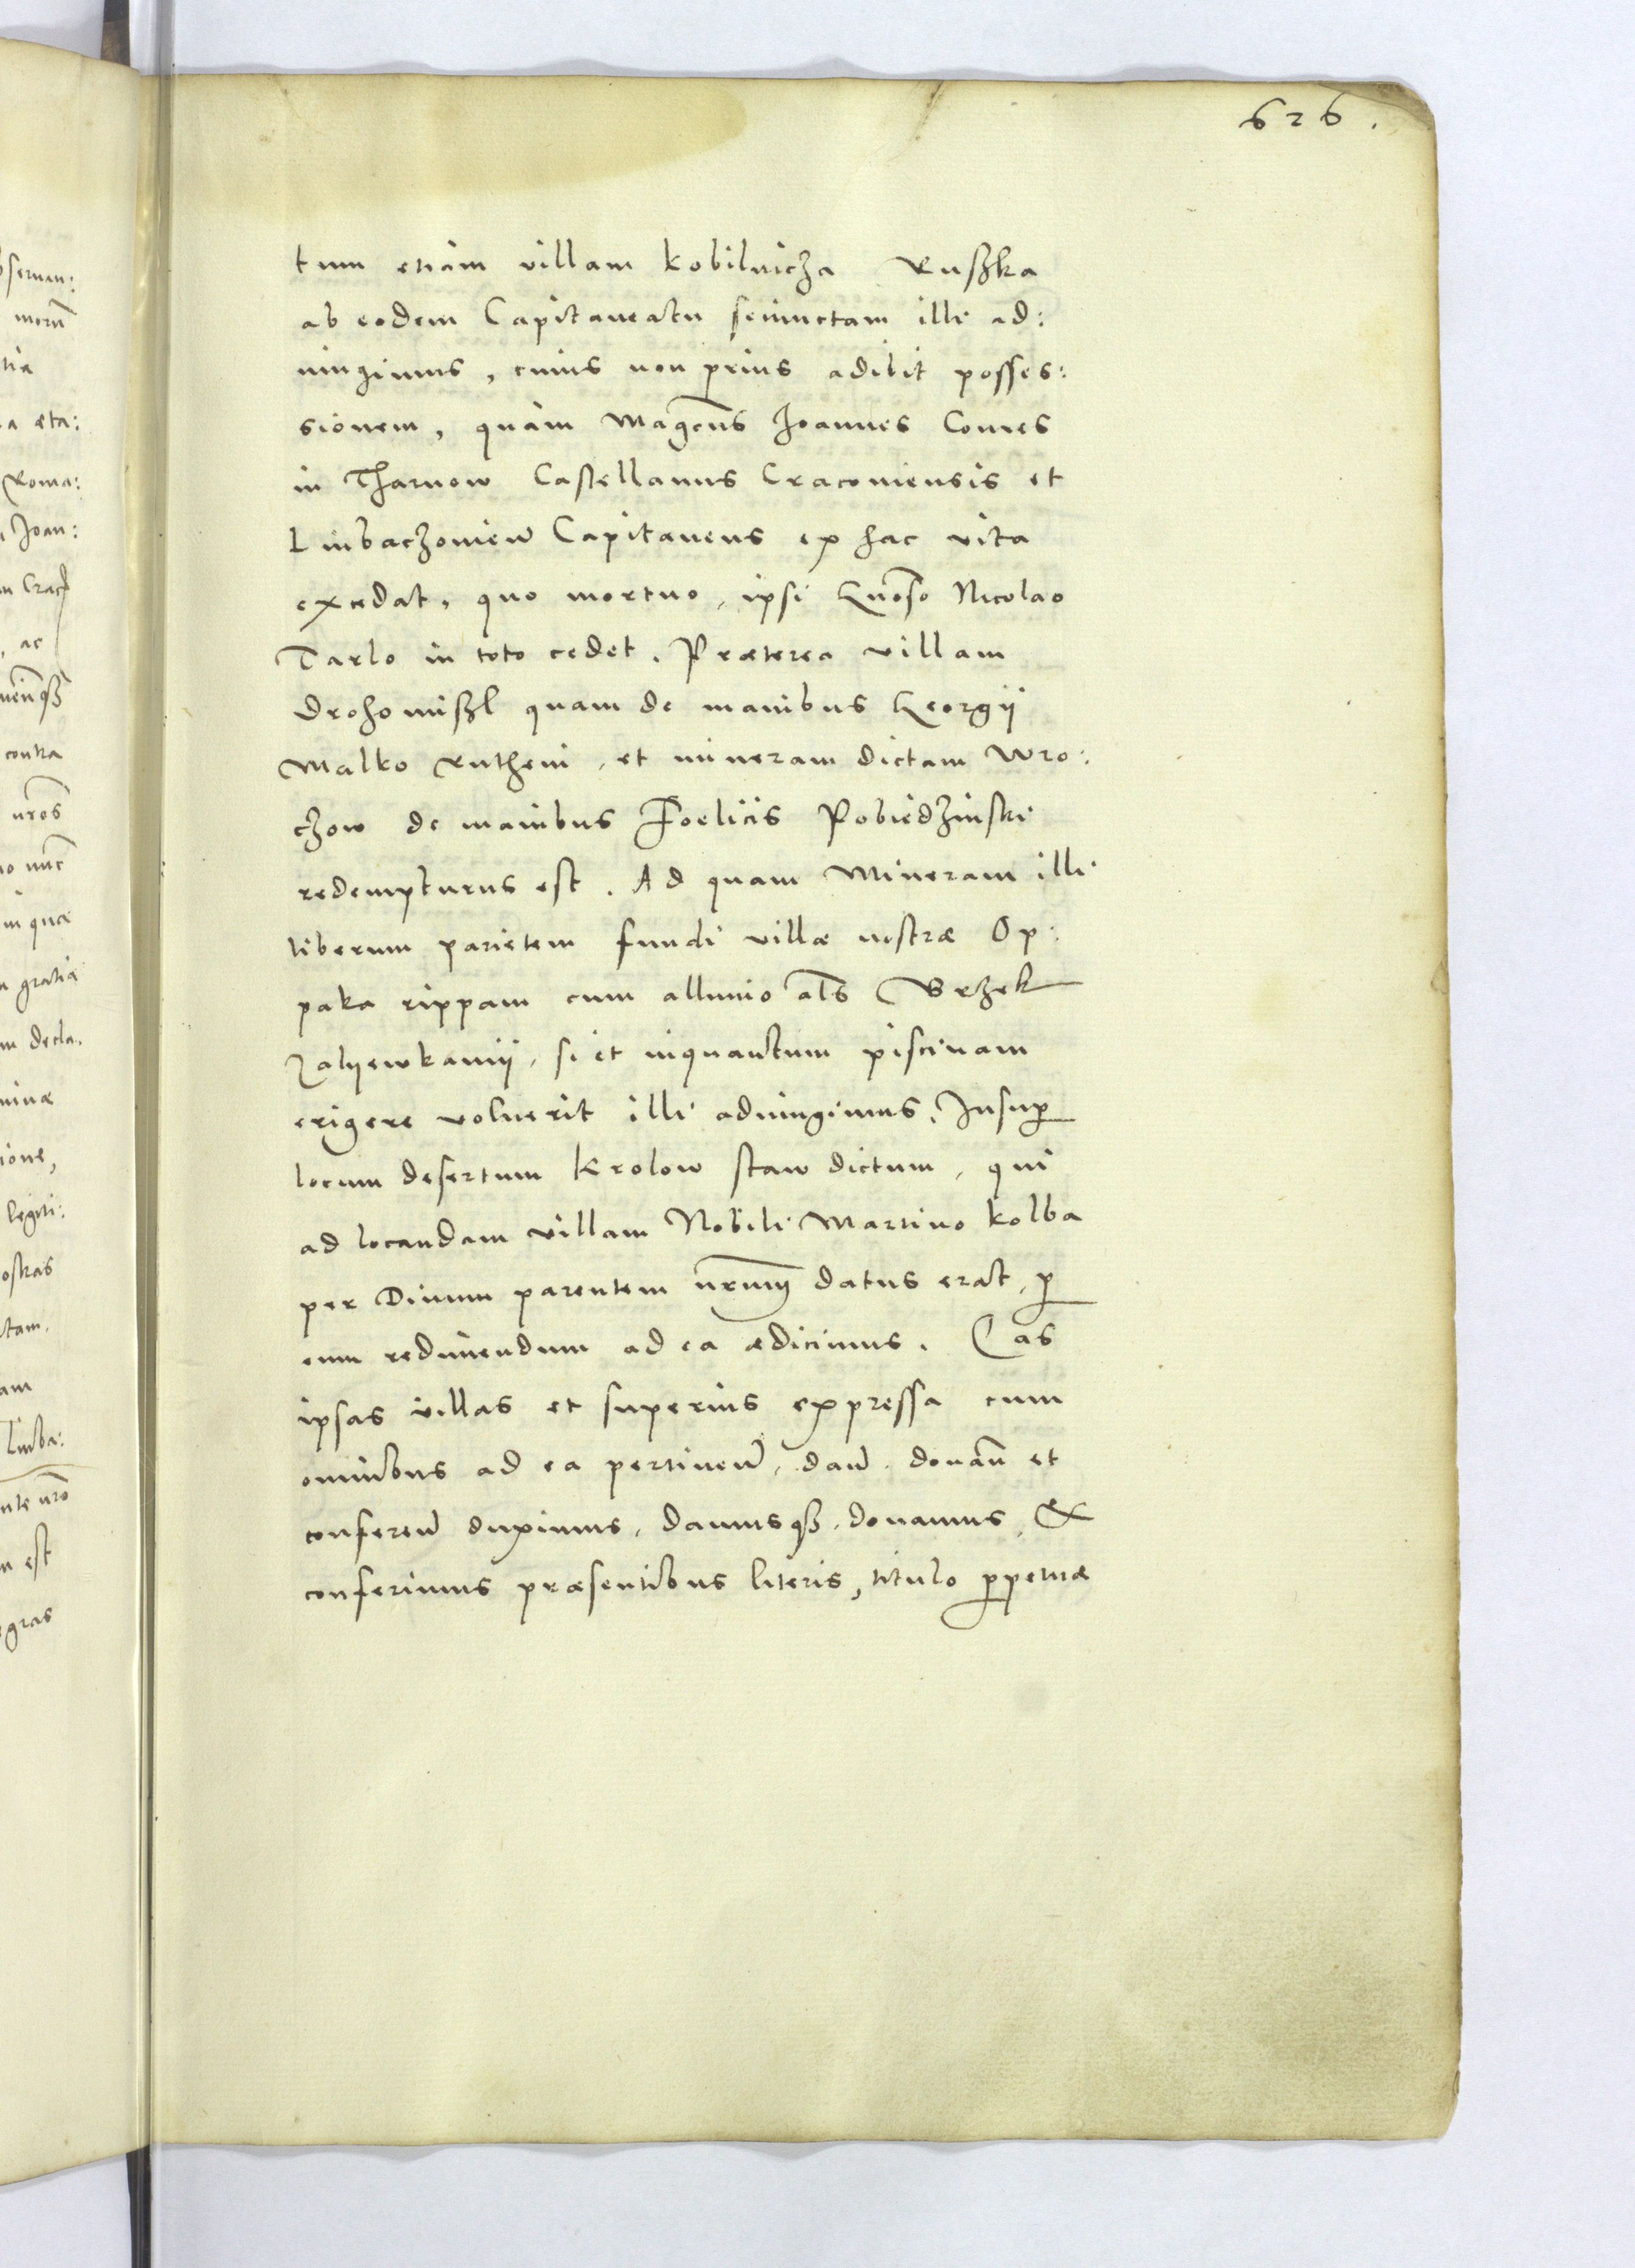 626.
tum etiam villam Kobilnicza Ruszka
ab eodem Capitaneatu seiunctam illi ad:
iungimus, cuius non prius adibit posses:
sionem, quàm Magcus Joannes Comes
in Tharnow Castellanus Cracoviensis et
Liubaczovien Capitaneus ex hac vita
excedat, quo mortuo, ipsi Gnoso Nicolao
Tarlo in toto cedet. Præterea villam
Drohomiszl quam de manibus Georgii
Malko Rutheni, et mineram dictam Wro:
czow de manibus Foelicis Pobiedzinski
redempturus est. Ad quam Mineram illi
liberum parietem fundi villæ nostræ Op:
paka rippam cum alluvio als Brzek
Zalyewkamij, si et inquantum piscinam
erigere voluerit illi adiungimus. Insup
locum desertum Krolow staw dictum, qui
ad locandam villam Nobili Martino Kolba
per Divum parentem nrum datus erat, p
eum redimendum ad ea ædicimus. Eas
ipsas villas et superius expressa cum
omnibus ad ea pertinen, dan. donan et
conferen duximus, damusqz. donamus, &
conferimus præsentibus literis, titulo ppetuæ